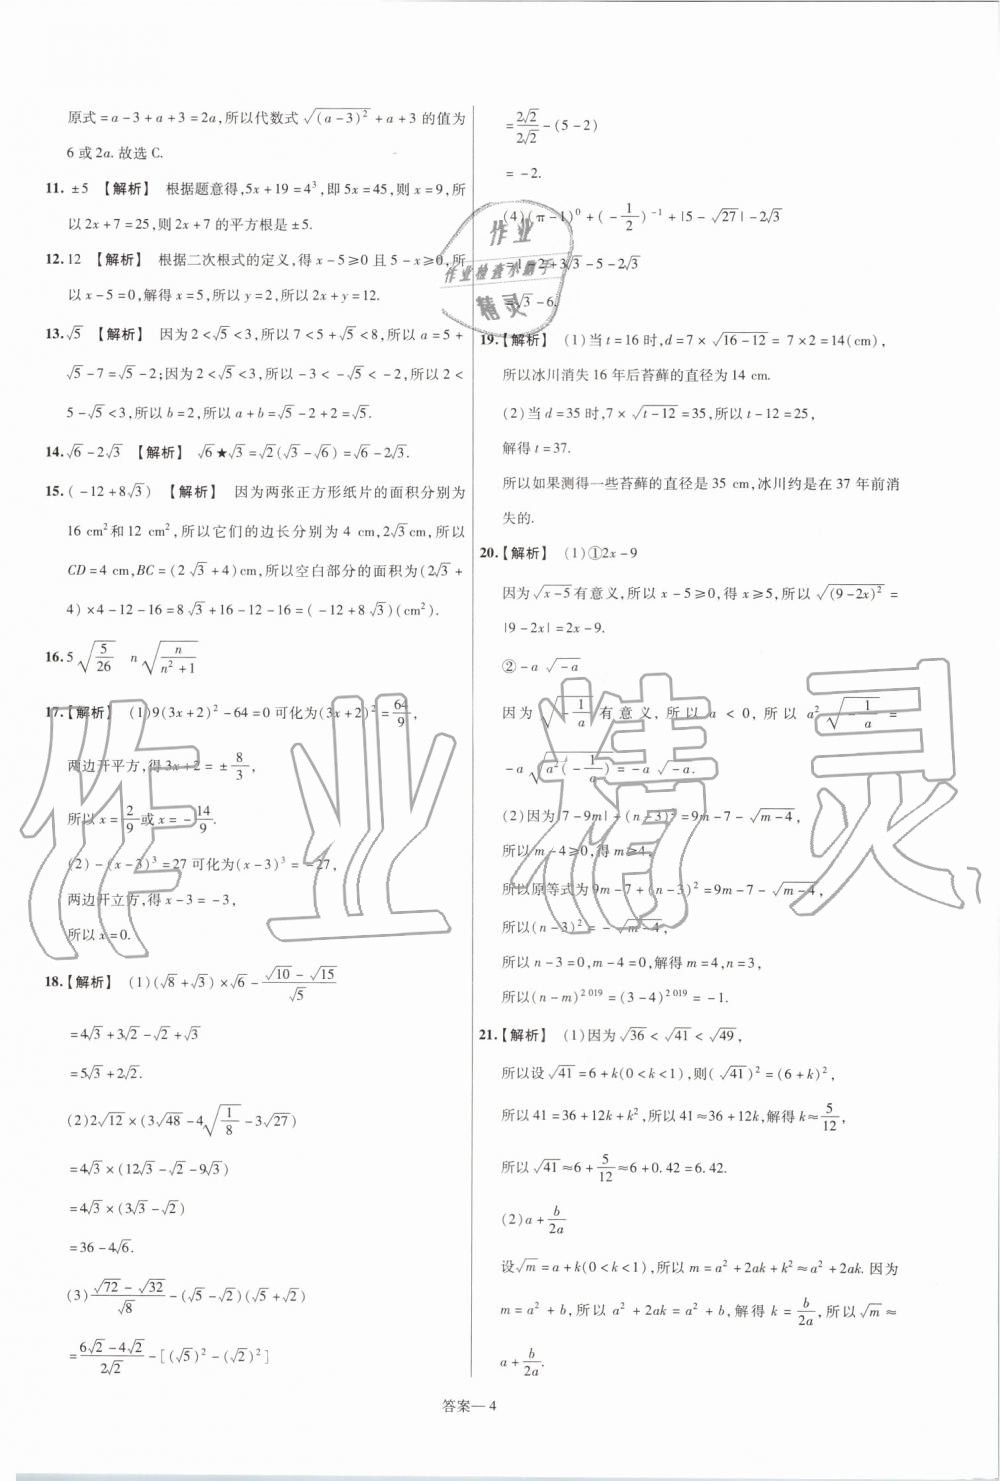 原式=a-3+a+3=2a,所以代数式√(a-3)²+a+3的值为
6或2a.故选C.
11. ±5 【解析】 根据题意得,5x+19=4³,即5x=45,则x=9,所
以2x+7=25,则2x+7的平方根是±5.
12. 12 【解析】 根据二次根式的定义,得x-5≥0且5-x≥0,所
以x-5=0,解得x=5,所以y=2,所以2x+y=12.
13. √5 【解析】 因为2<√5<3,所以7<5+√5<8,所以a=5+
√5-7=√5-2;因为2<√5<3,所以-3<-√5<-2,所以2<
5-√5<3,所以b=2,所以a+b=√5-2+2=√5.
14. √6-2√3 【解析】 √6★√3=√2(√3-√6)=√6-2√3.
15. (-12+8√3) 【解析】 因为两张正方形纸片的面积分别为
16 cm²和12 cm²,所以它们的边长分别为4 cm,2√3 cm,所以
CD=4 cm,BC=(2√3+4)cm,所以空白部分的面积为(2√3+
4)×4-12-16=8√3+16-12-16=(-12+8√3)(cm²).
16. 5√(5/26) n√(n/(n²+1))
17.【解析】 (1)9(3x+2)²-64=0可化为(3x+2)²=64/9,
两边开平方,得3x+2=±8/3,
所以x=2/9或x=-14/9.
(2)-(x-3)³=27可化为(x-3)³=-27,
两边开立方,得x-3=-3,
所以x=0.
18.【解析】 (1)(√8+√3)×√6-(√10-√15)/√5
=4√3+3√2-√2+√3
=5√3+2√2.
(2)2√12×(3√48-4√(1/8)-3√27)
=4√3×(12√3-√2-9√3)
=4√3×(3√3-√2)
=36-4√6.
(3)(√72-√32)/√8-(√5-√2)(√5+√2)
=(6√2-4√2)/2√2-[(√5)²-(√2)²]
=2√2/2√2-(5-2)
=-2.
(4)(π-1)⁰+(-1/2)⁻¹+|5-√27|-2√3
=1-2+3√3-5-2√3
=√3-6.
19.【解析】 (1)当t=16时,d=7×√(16-12)=7×2=14(cm),
所以冰川消失16年后苔藓的直径为14 cm.
(2)当d=35时,7×√(t-12)=35,所以t-12=25,
解得t=37.
所以如果测得一些苔藓的直径是35 cm,冰川约是在37年前消
失的.
20.【解析】 (1)①2x-9
因为√(x-5)有意义,所以x-5≥0,得x≥5,所以√(9-2x)²=
|9-2x|=2x-9.
②-a√-a
因为√(-1/a)有意义,所以a<0,所以a²√(-1/a)=
-a√(a²(-1/a))=-a√-a.
(2)因为|7-9m|+(n-3)²=9m-7-√(m-4),
所以m-4≥0,得m≥4,
所以原等式为9m-7+(n-3)²=9m-7-√(m-4),
所以(n-3)²=-√(m-4),
所以n-3=0,m-4=0,解得m=4,n=3,
所以(n-m)²⁰¹⁹=(3-4)²⁰¹⁹=-1.
21.【解析】 (1)因为√36<√41<√49,
所以设√41=6+k(0<k<1),则(√41)²=(6+k)²,
所以41=36+12k+k²,所以41≈36+12k,解得k≈5/12,
所以√41≈6+5/12≈6+0.42=6.42.
(2)a+b/2a
设√m=a+k(0<k<1),所以m=a²+2ak+k²≈a²+2ak.因为
m=a²+b,所以a²+2ak=a²+b,解得k=b/2a,所以√m≈
a+b/2a.
答案—4
作业
作业检查小助手
精灵
作业精灵